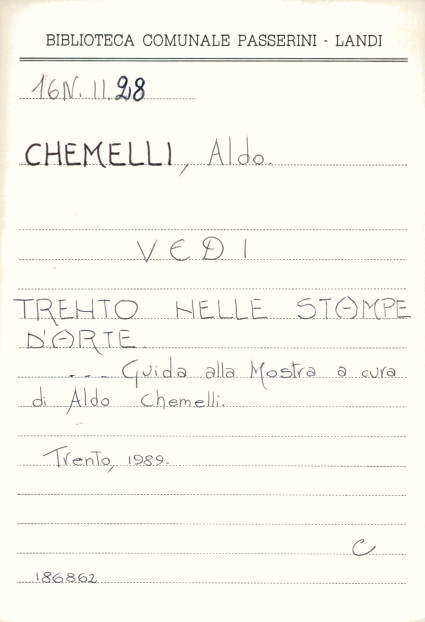 BIBLIOTECA COMUNALE PASSERINI - LANDI
16N. II. 28
CHEMELLI, Aldo.
VEDI
TRENTO NELLE STAMPE
D'ARTE
--- Guida alla Mostra a cura
di Aldo Chemelli.
Trento, 1989.
C
186862